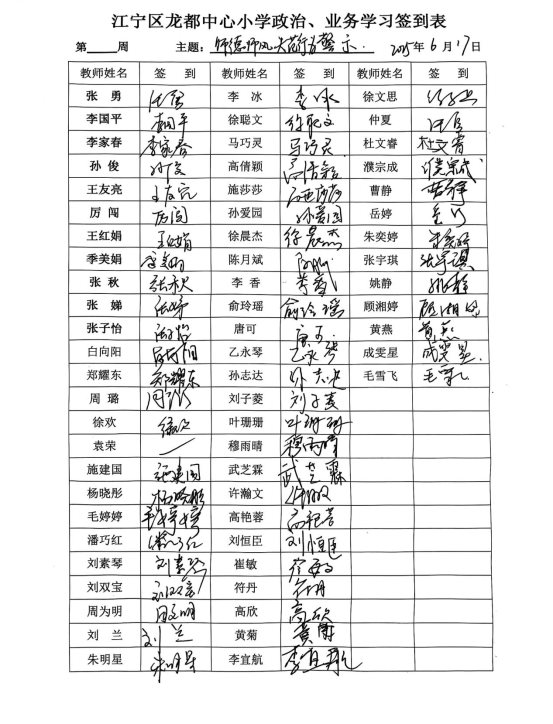 江宁区龙都中心小学政治、业务学习签到表
第 周 主题：师德师风 警示. 2015年6月17日
教师姓名 签 到 教师姓名 签 到 教师姓名 签 到
张 勇 李 冰 李冰 徐文思
李国平 李国平 徐聪文 徐聪文 仲夏
李家春 李家春 马巧灵 马巧灵 杜文睿 杜文睿
孙 俊 孙俊 高倩颖 濮宗成 濮宗成
王友亮 王友亮 施莎莎 施莎莎 曹静 曹静
厉 闯 厉闯 孙爱园 孙爱园 岳婷
王红娟 王红娟 徐晨杰 徐晨杰 朱奕婷
季美娟 陈月斌 张宇琪 张宇琪
张 秋 张秋 李 香 姚静
张 娣 张娣 俞玲瑶 俞玲瑶 顾湘婷 顾湘婷
张子怡 张子怡 唐可 唐可 黄燕 黄燕
白向阳 白向阳 乙永琴 乙永琴 成雯星 成雯星
郑耀东 郑耀东 孙志达 孙志达 毛雪飞
周 璐 周璐 刘子菱 刘子菱
徐欢 徐欢 叶珊珊 叶珊珊
袁荣 穆雨晴 穆雨晴
施建国 施建国 武芝霖 武芝霖
杨晓彤 杨晓彤 许瀚文
毛婷婷 毛婷婷 高艳蓉
潘巧红 刘恒臣 刘恒臣
刘素琴 刘素琴 崔敏 崔敏
刘双宝 符丹 符丹
周为明 周为明 高欣 高欣
刘 兰 刘兰 黄菊 黄菊
朱明星 朱明星 李宜航 李宜航